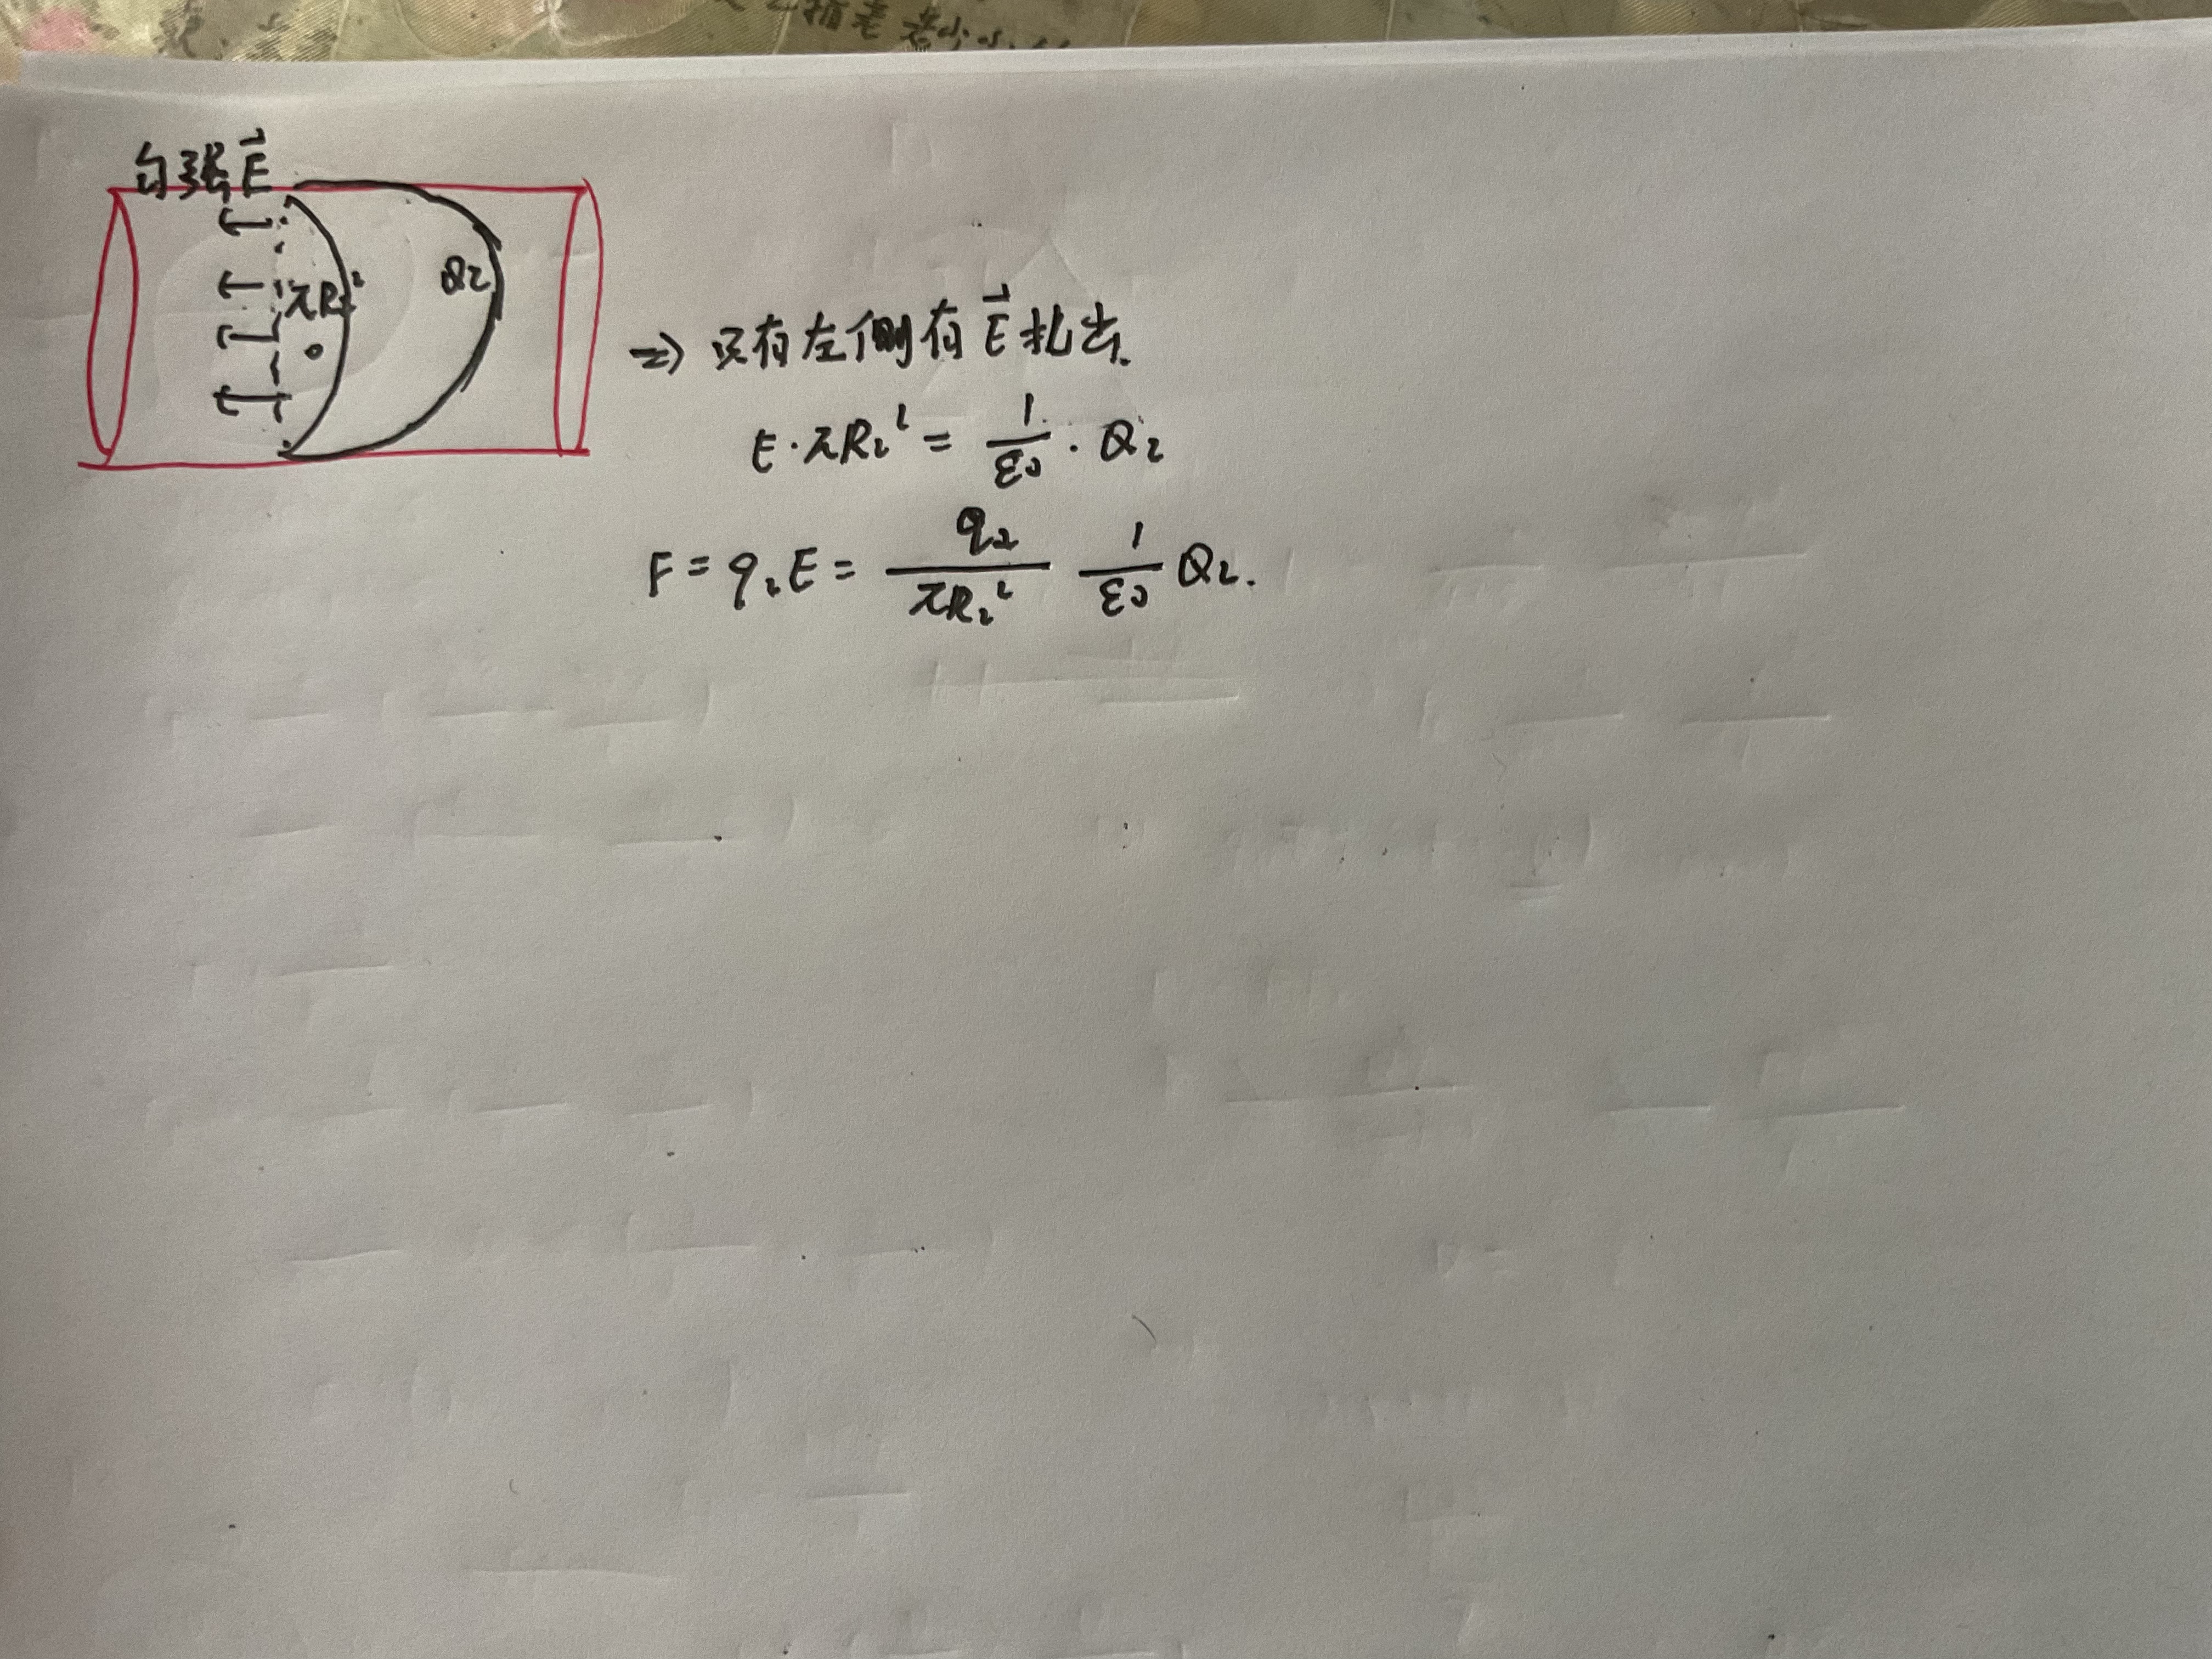 匀强 E⃗
πR₂²
Q₂
⇒ 只有左侧有 E⃗ 扎出.
E · πR₂² = 1/ε₀ · Q₂
F = q₂E = q₂/πR₂² 1/ε₀ Q₂.